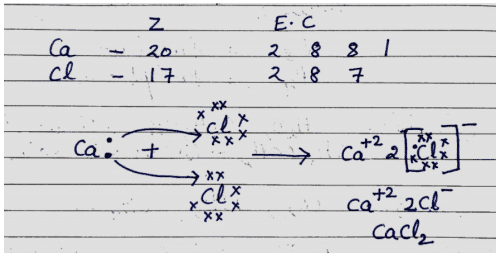 Z E.C
Ca - 20 2 8 8 1
Cl - 17 2 8 7
Ca + Cl → Ca⁺² 2[Cl]⁻
Cl Ca⁺² 2Cl⁻
CaCl₂